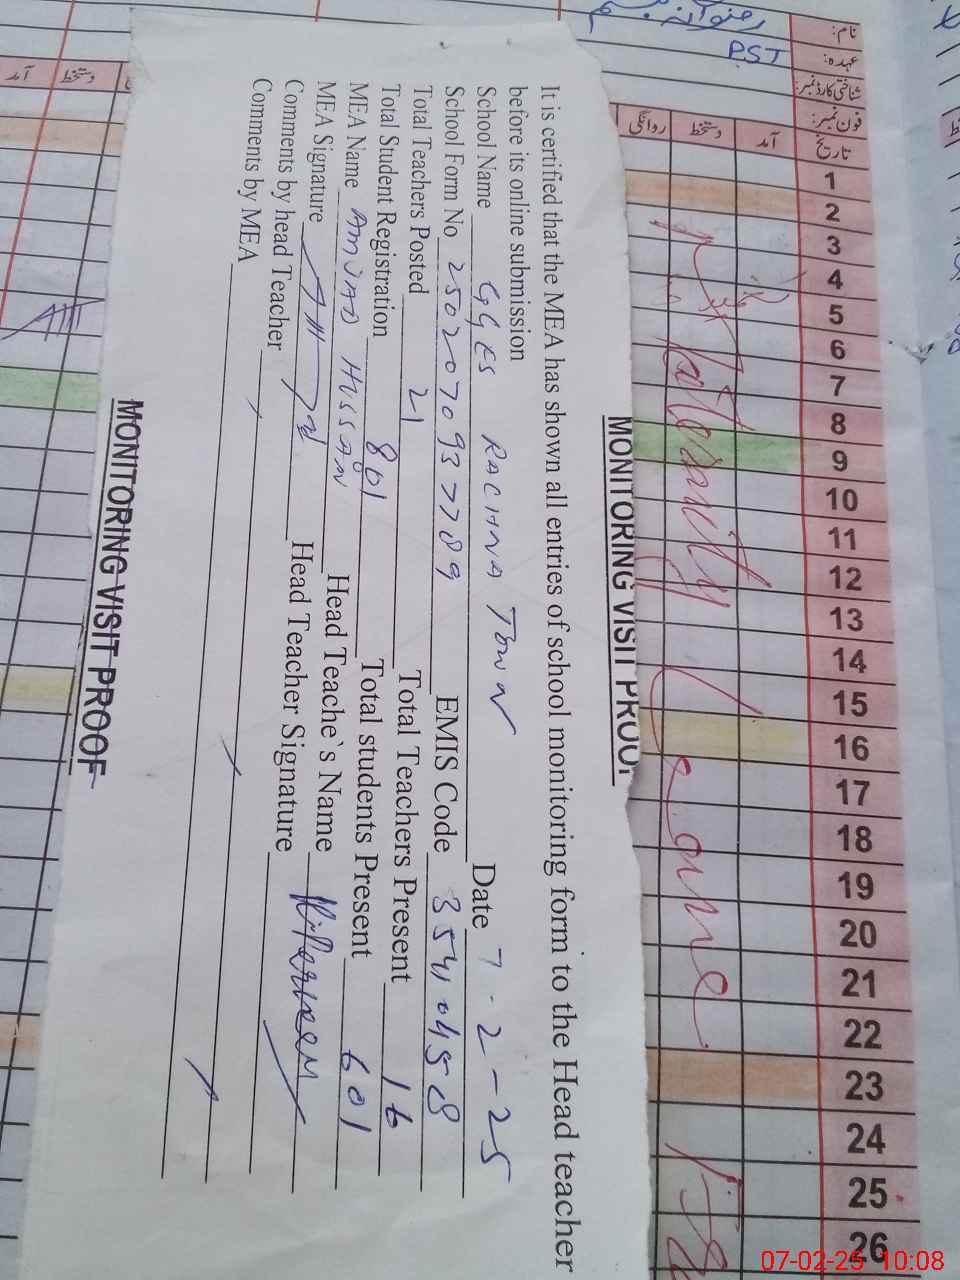 نام:
عہدہ: PST
شناختی کارڈ نمبر:
فون نمبر:
تاریخ آمد دستخط روانگی
1
2
3
4
5
6
7
8
9
10
11
12
13
14
15
16
17
18
19
20
21
22
23
24
25
26
دستخط آمد
MONITORING VISIT PROOF
It is certified that the MEA has shown all entries of school monitoring form to the Head teacher
before its online submission
School Name GGES RACHNA TOWN Date 7-2-25
School Form No 2502070937789 EMIS Code 35404508
Total Teachers Posted 21 Total Teachers Present 16
Total Student Registration 801 Total students Present 601
MEA Name AMJAD HUSSAIN Head Teache`s Name
MEA Signature Head Teacher Signature
Comments by head Teacher
Comments by MEA
MONITORING VISIT PROOF
07-02-25 10:08